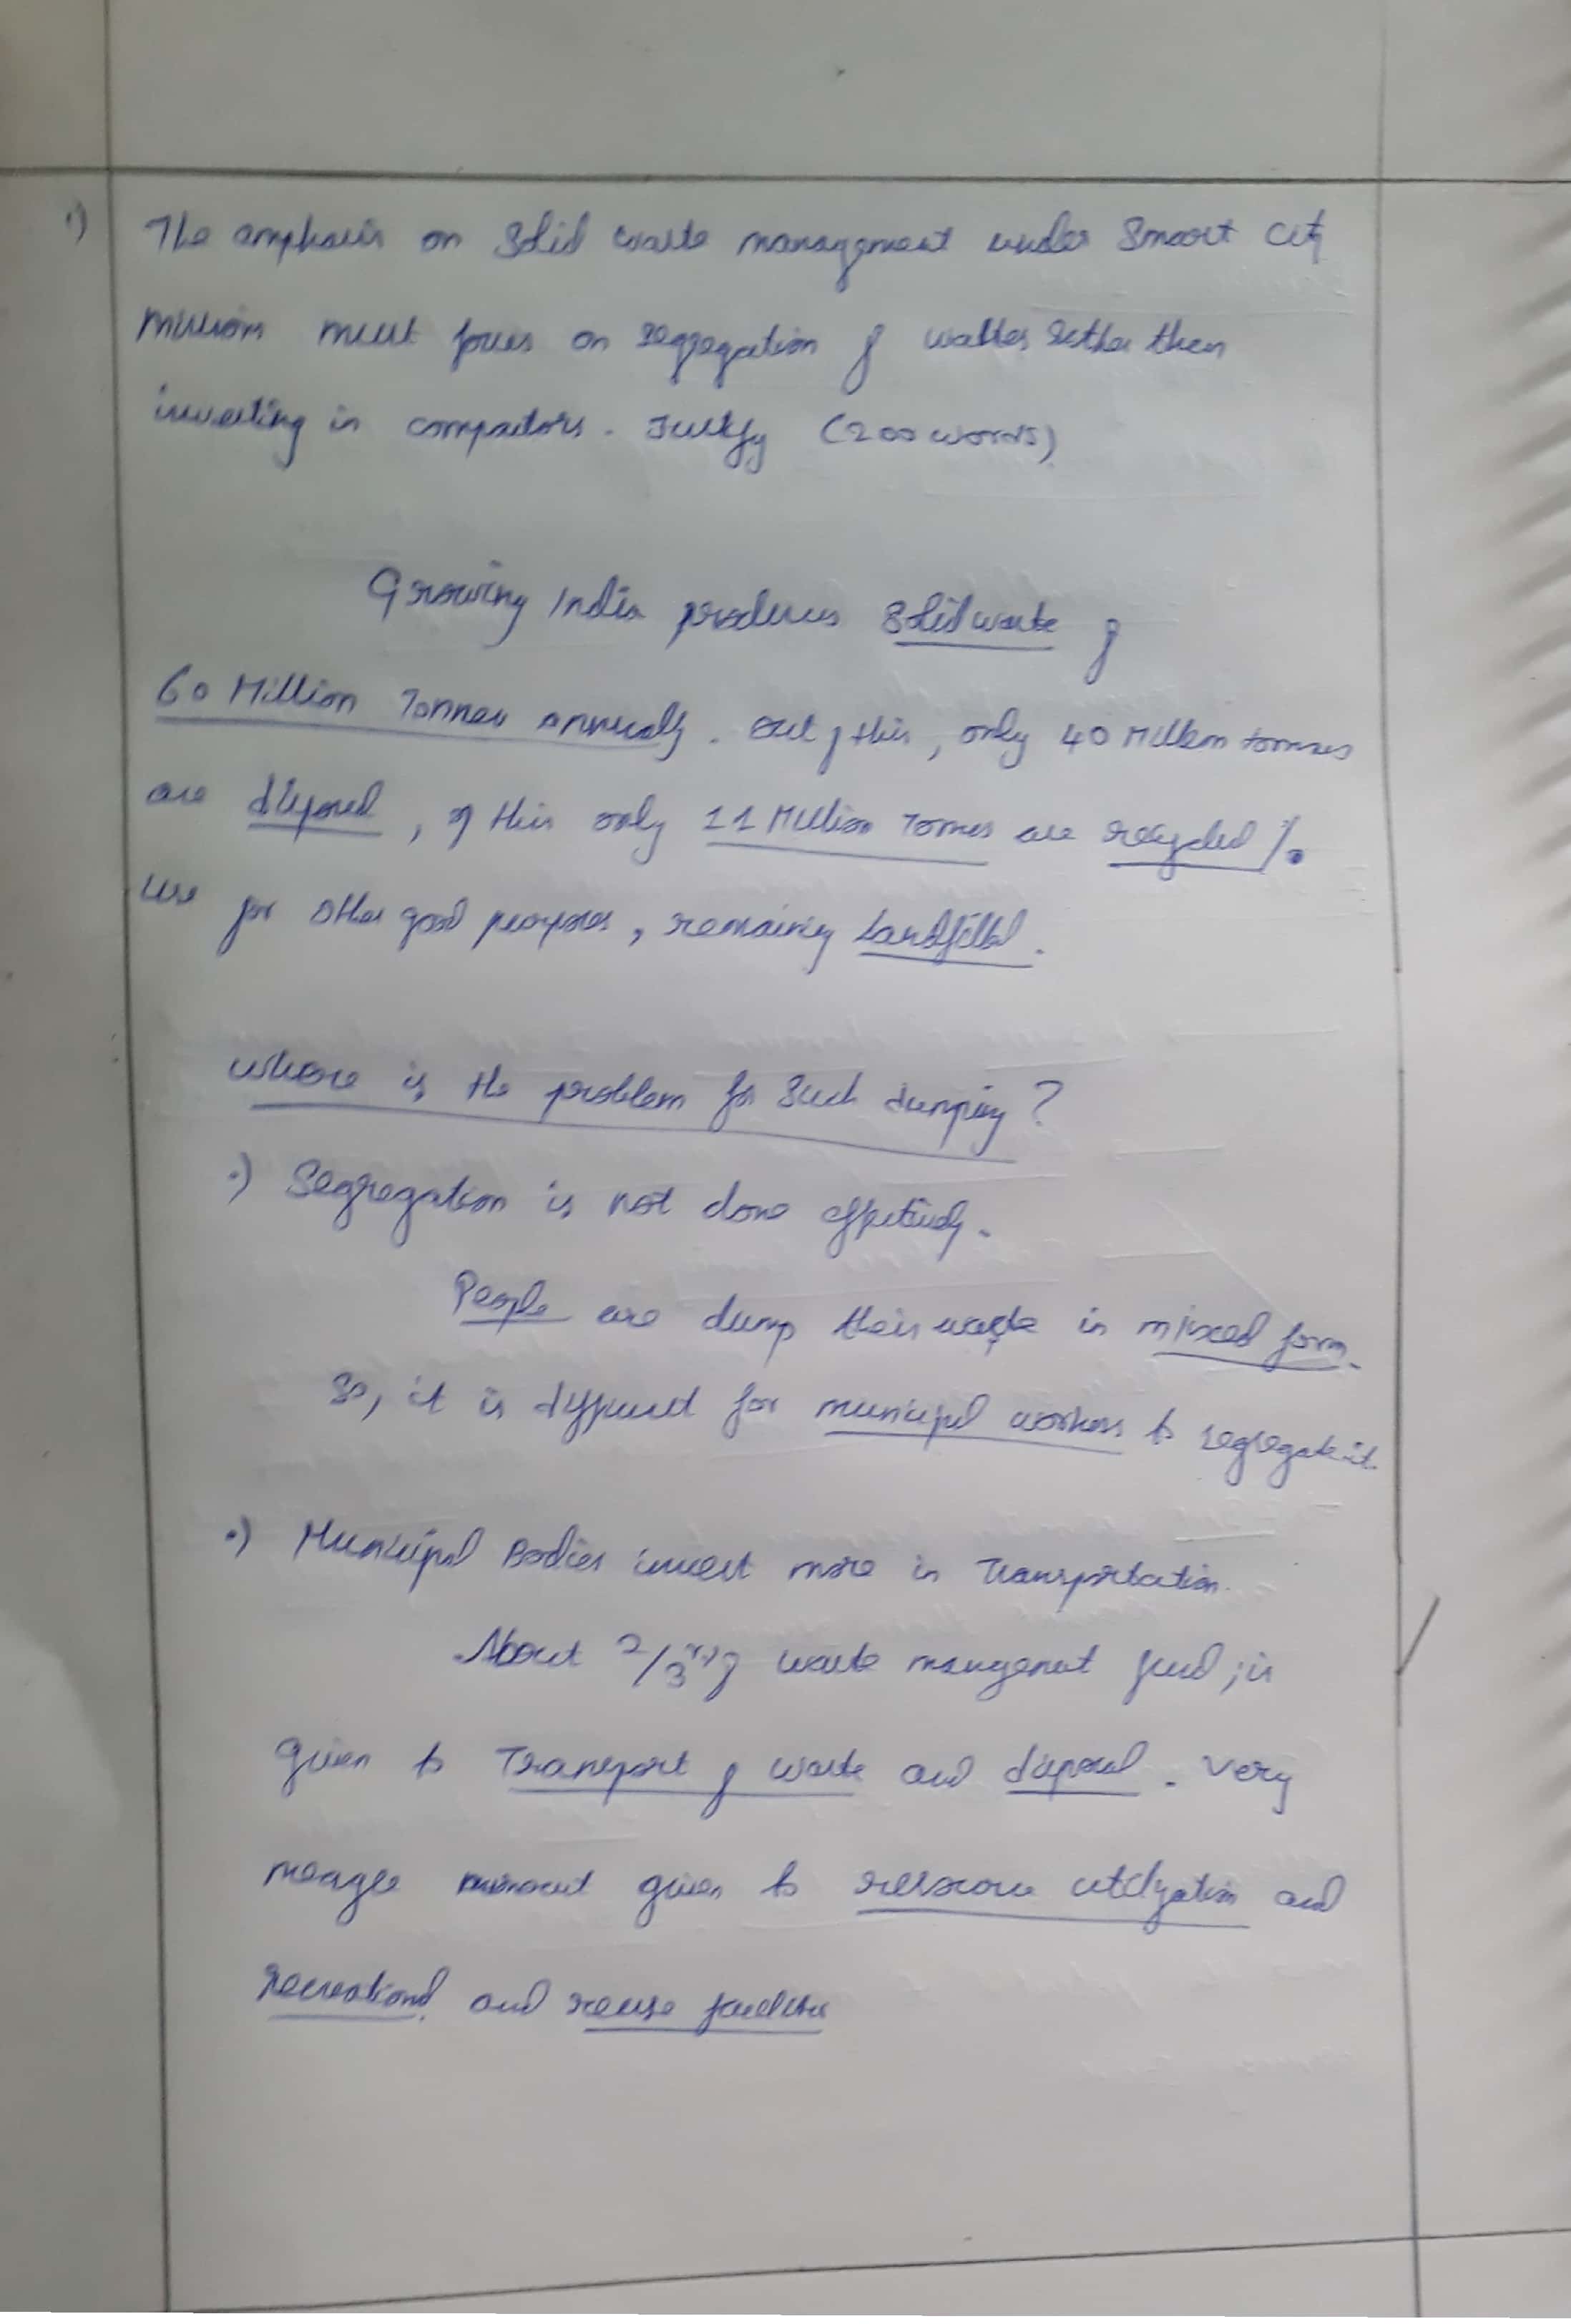 1) The emphasis on Solid waste management under Smart City
Mission must focus on segregation of wastes rather than
investing in compactors. Justify (200 words)
Growing India produces Solid waste of
60 Million Tonnes annually. out of this, only 40 Million tonnes
are disposed, of this only 11 Million Tonnes are recycled /.
use for other good purposes, remaining Landfilled.
where is the problem for such dumping?
•) Segregation is not done effectively.
People are dump their waste in mixed form.
So, it is difficult for municipal workers to segregate it.
•) Municipal Bodies invest more in Transportation.
About 2/3rd of waste management fund, is
given to Transport of waste and disposal. Very
meagre amount given to resource utilization and
recreational and reuse facilities